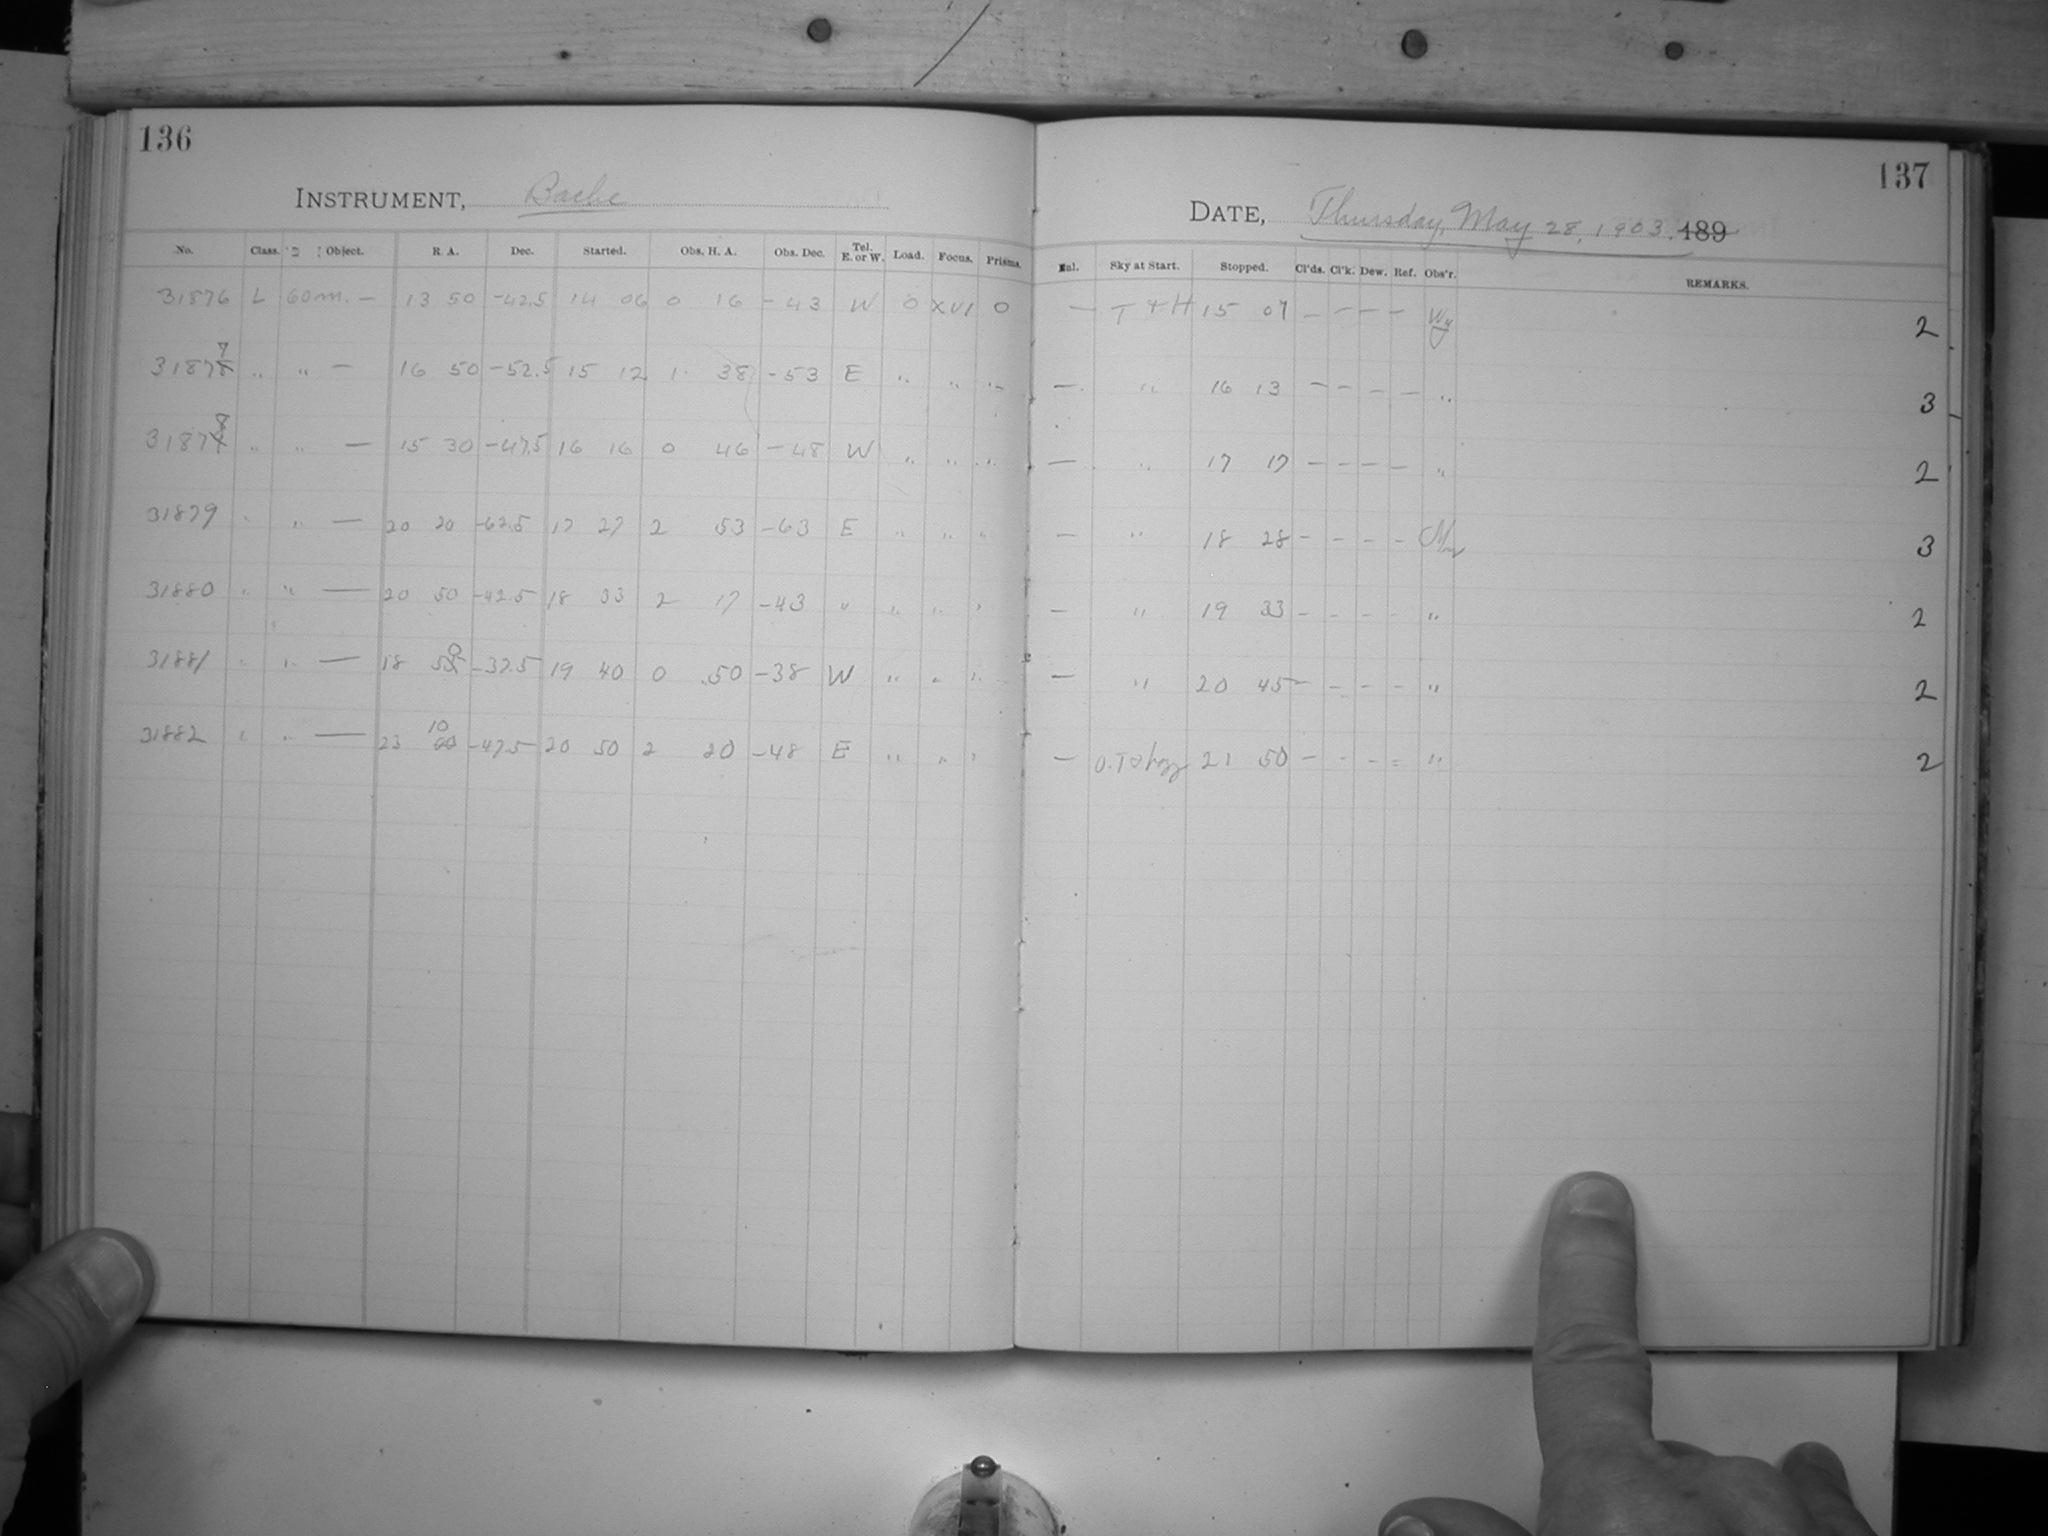 136
INSTRUMENT, Bache
No. Class. Object. R. A. Dec. Started. Obs. H. A. Obs. Dec. Tel. E. or W. Load. Focus. Prisms.
31876 L 60m. — 13 50 -42.5 14 06 0 16 -43 W 0 XVI 0
31877 " " — 16 50 -52.5 15 12 1 38 -53 E " " "
31878 " " — 15 30 -47.5 16 16 0 46 -48 W " " "
31879 " " — 20 20 -62.5 17 27 2 53 -63 E " " "
31880 " " — 20 50 -42.5 18 33 2 17 -43 " " " "
31881 " " — 18 50 -37.5 19 40 0 50 -38 W " " "
31882 " " — 23 10 -47.5 20 50 2 20 -48 E " " "
137
DATE, Thursday, May 28, 1903. 189
Sky at Start. Stopped. Cl'ds. Cl'k. Dew. Ref. Obs'r. REMARKS.
— T & H 15 07 — — — — Wy 2
— " 16 13 — — — — " 3
— " 17 17 — — — — " 2
— " 18 28 — — — — 3
— " 19 33 — — — — " 2
— " 20 45 — — — — " 2
— 21 50 — — — = " 2